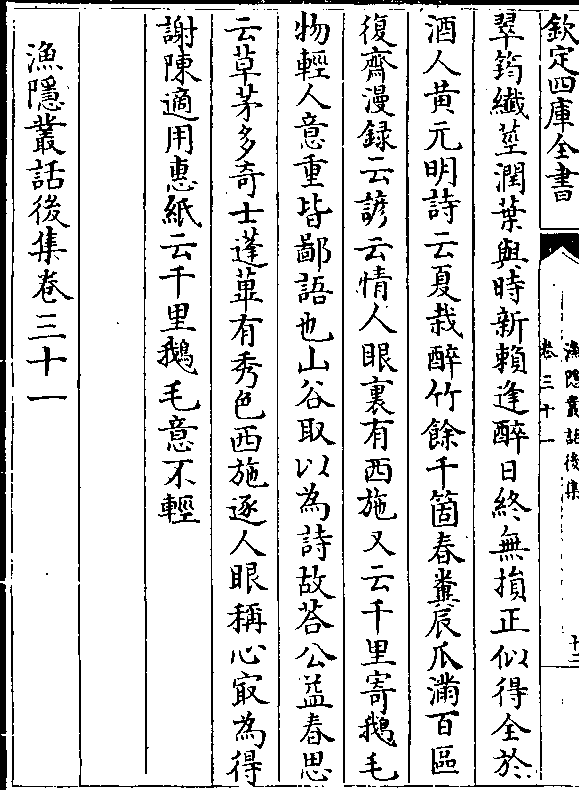 欽定四庫全書
漁隱叢話後集
卷三十一
十三
翠筠纖莖潤葉與時新頼逢醉日終無損正似得全於
酒人黃元明詩云夏栽醉竹餘千箇春糞辰瓜滿百區
復齋漫録云諺云情人眼裏有西施又云千里寄鵝毛
物輕人意重皆鄙語也山谷取以為詩故荅公益春思
云草茅多奇士蓬蓽有秀色西施逐人眼稱心㝡為得
謝陳適用惠紙云千里鵝毛意不輕
漁隱叢話後集卷三十一